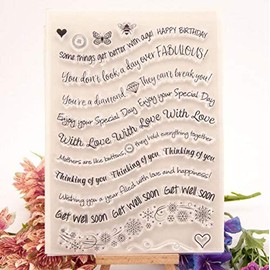 HAPPY BIRTHDAY
Some things get better with age
You don't look a day over FABULOUS!
You're a diamond They can't break you!
Enjoy your Special Day Enjoy your Special Day
With Love With Love With Love
Mothers are like buttons they hold everything together
Thinking of you Thinking of you Thinking of you
Wishing you a year filled with love and happiness!
Get Well Soon Get Well Soon Get Well Soon